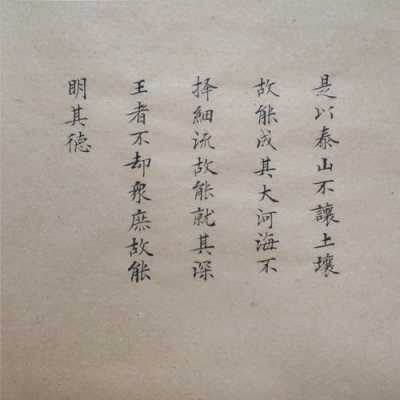 是以泰山不讓土壤
故能成其大河海不
择細流故能就其深
王者不却衆庶故能
明其德